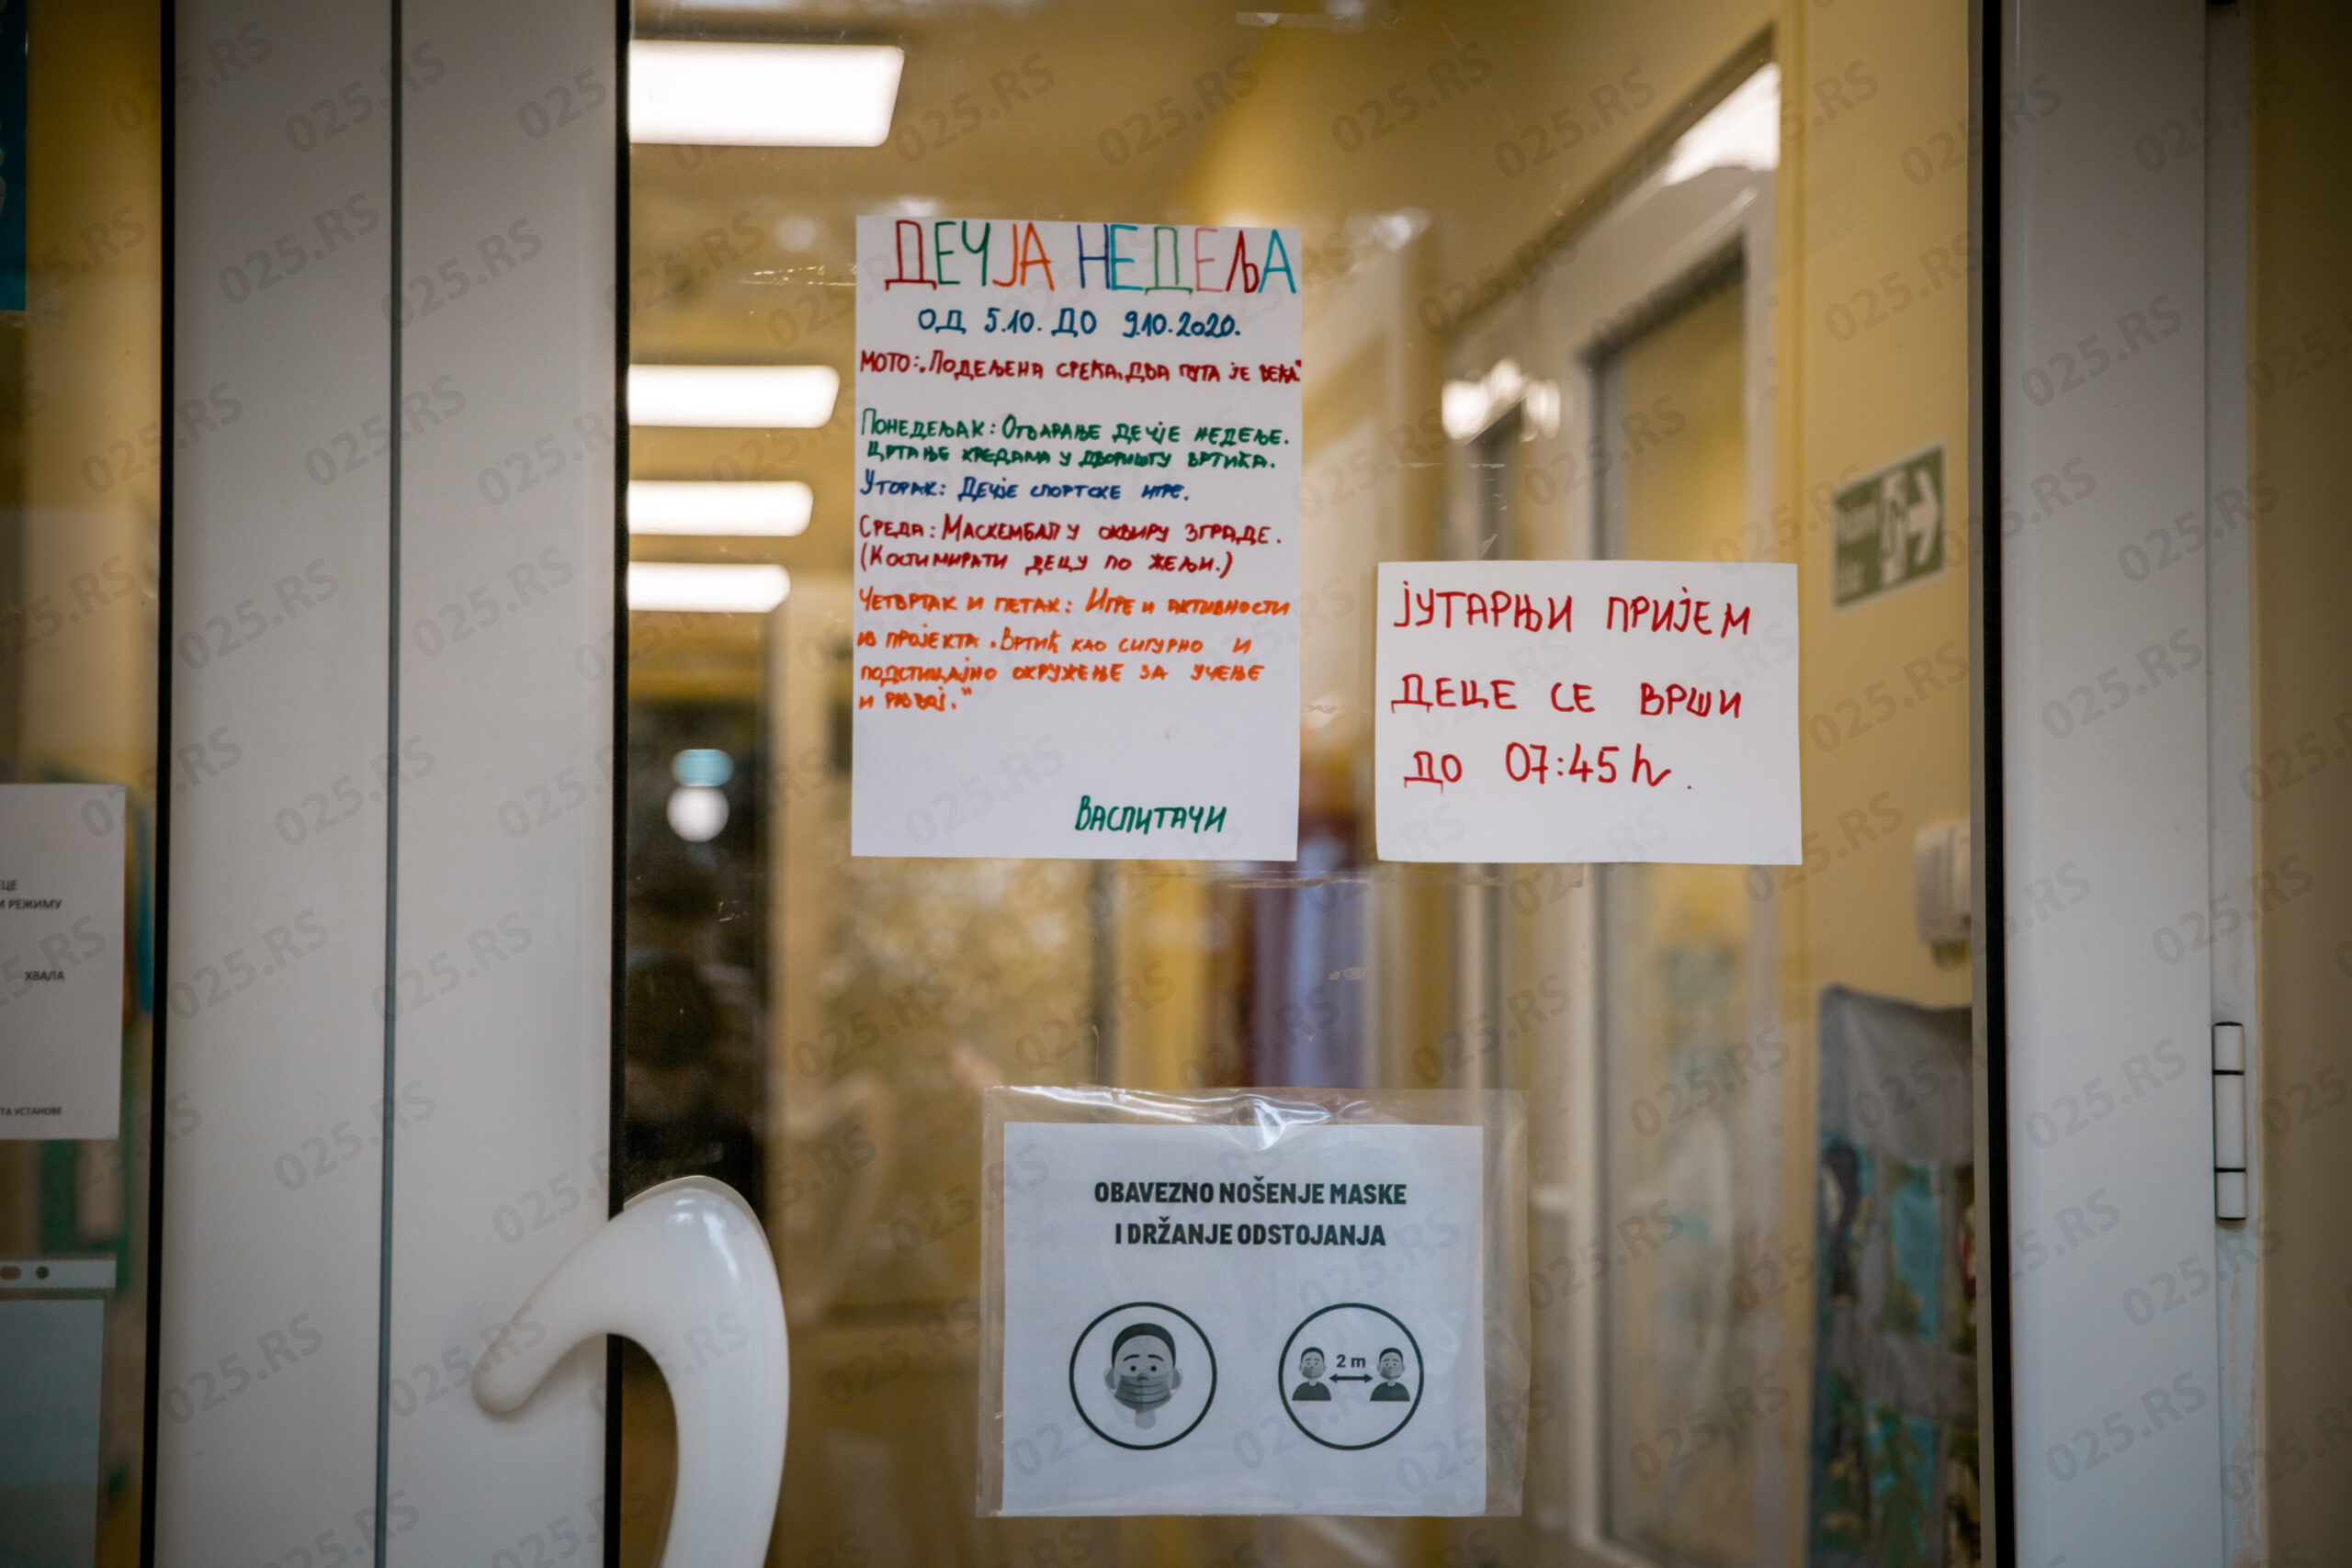 ДЕЧЈА НЕДЕЉА
ОД 5.10. ДО 9.10.2020.
МОТО: „ПОДЕЉЕНА СРЕЋА, ДВА ПУТА ЈЕ ВЕЋА"
ПОНЕДЕЉАК: ОТВАРАЊЕ ДЕЧЈЕ НЕДЕЉЕ.
ЦРТАЊЕ КРЕДАМА У ДВОРИШТУ ВРТИЋА.
УТОРАК: ДЕЧЈЕ СПОРТСКЕ ИГРЕ.
СРЕДА: МАСКЕМБАЛ У ОКВИРУ ЗГРАДЕ.
(КОСТИМИРАТИ ДЕЦУ ПО ЖЕЉИ.)
ЧЕТВРТАК И ПЕТАК: ИГРЕ И АКТИВНОСТИ
ИЗ ПРОЈЕКТА „ВРТИЋ КАО СИГУРНО И
ПОДСТИЦАЈНО ОКРУЖЕЊЕ ЗА УЧЕЊЕ
И РАЗВОЈ."
ВАСПИТАЧИ
ЈУТАРЊИ ПРИЈЕМ
ДЕЦЕ СЕ ВРШИ
ДО 07:45 h.
OBAVEZNO NOŠENJE MASKE
I DRŽANJE ODSTOJANJA
2 m
РЕЖИМУ
ХВАЛА
УСТАНОВЕ
025.RS